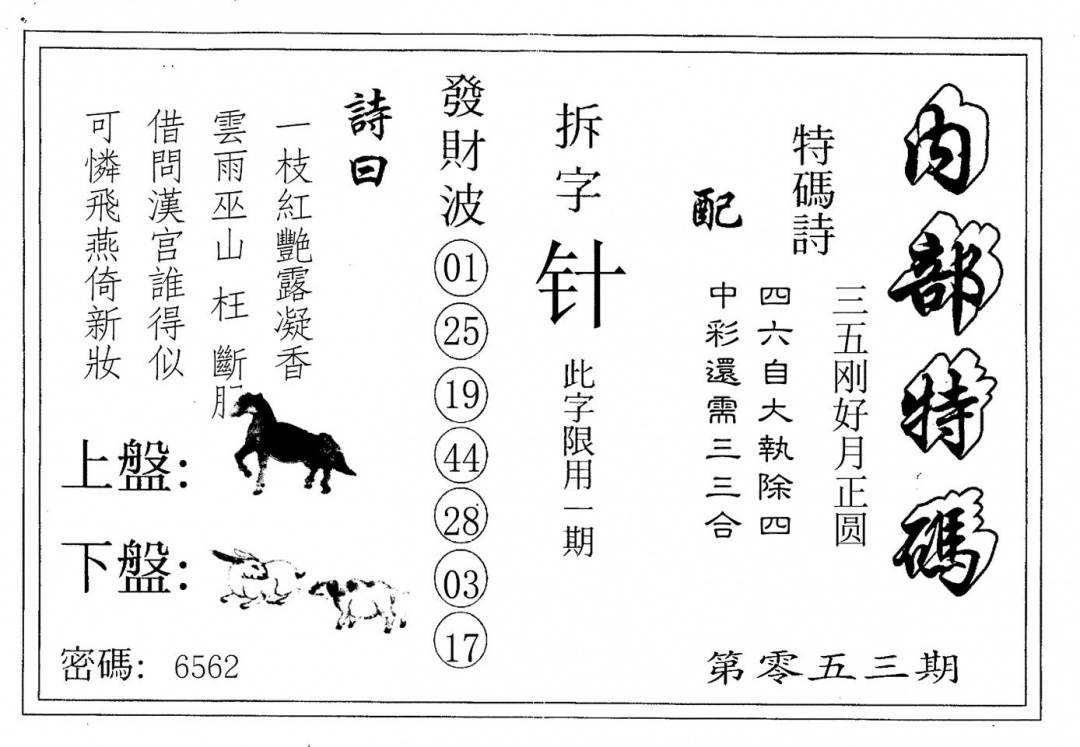 内部特碼
特碼詩
三五刚好月正圆
配
四六自大執除四
中彩還需三三合
第零五三期
拆字
针
此字限用一期
發財波
01
25
19
44
28
03
17
詩曰
一枝紅艷露凝香
雲雨巫山枉斷
借問漢宮誰得似
可憐飛燕倚新妝
上盤：
下盤：
密碼：6562